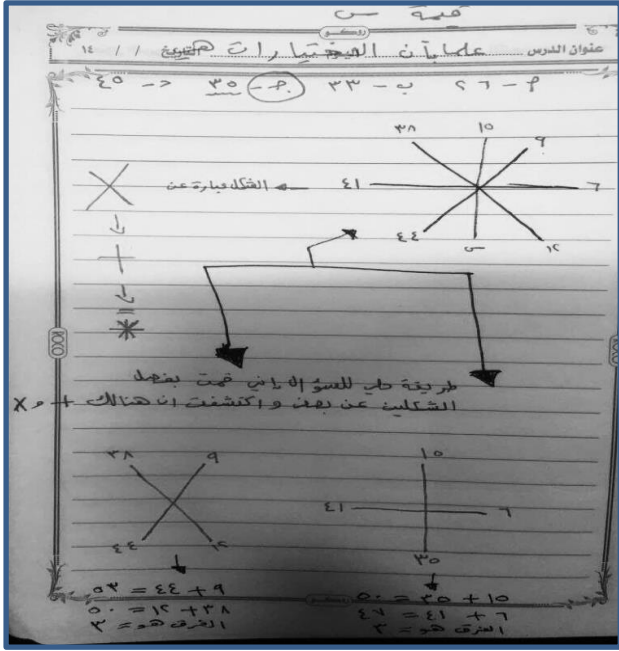 قيمة س
عنوان الدرس علما بأن الاختيارات هي التاريخ / / ١٤
روكو
أ - ٢٦ ب - ٣٣ ج - ٣٥ د - ٤٥
٣٨ ١٥ ٩
٤١ ٦
٤٤ س ١٢
الشكل عبارة عن
طريقة حلي للسؤال باني قمت بفصل
الشكلين عن بعض و اكتشفت ان هنالك + و x
٣٨ ٩
٤٤ ١٢
١٥
٤١ ٦
٣٥
٩ + ٤٤ = ٥٣
٣٨ + ١٢ = ٥٠
الفرق هو = ٣
١٥ + ٣٥ = ٥٠
٦ + ٤١ = ٤٧
الفرق هو = ٣
روكو
ROCO